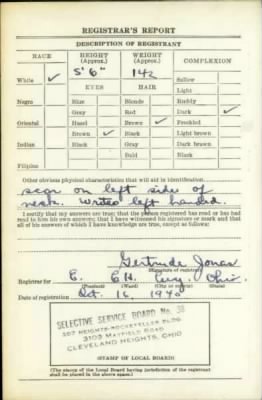 REGISTRAR'S REPORT
DESCRIPTION OF REGISTRANT
RACE HEIGHT (Approx.) WEIGHT (Approx.) COMPLEXION
5' 6" 142
White ✓ Sallow
EYES HAIR Light
Negro Blue Blonde Ruddy
Gray Red Dark ✓
Oriental Hazel Brown ✓ Freckled
Brown ✓ Black Light brown
Indian Black Gray Dark brown
Bald Black
Filipino
Other obvious physical characteristics that will aid in identification
scar on left side of
neck. Writes left handed.
I certify that my answers are true; that the person registered has read or has had
read to him his own answers; that I have witnessed his signature or mark and that
all of his answers of which I have knowledge are true, except as follows:
Gertrude Jonas
(Signature of registrar)
Registrar for E. C.H. Cuy. Ohio
(Precinct) (Ward) (City or county) (State)
Date of registration Oct. 16, 1940
SELECTIVE SERVICE BOARD No. 38
507 HEIGHTS-ROCKEFELLER BLDG
3103 MAYFIELD ROAD
CLEVELAND HEIGHTS, OHIO
(STAMP OF LOCAL BOARD)
(The stamp of the Local Board having jurisdiction of the registrant
shall be placed in the above space.)